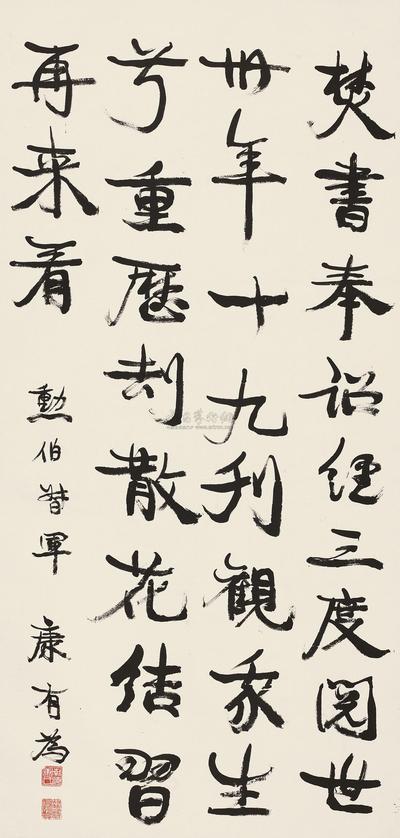 焚書奉詔經三度閱世
卅年十九刊觀我生
兮重歷劫散花結習
再来看
勳伯督軍 康有為